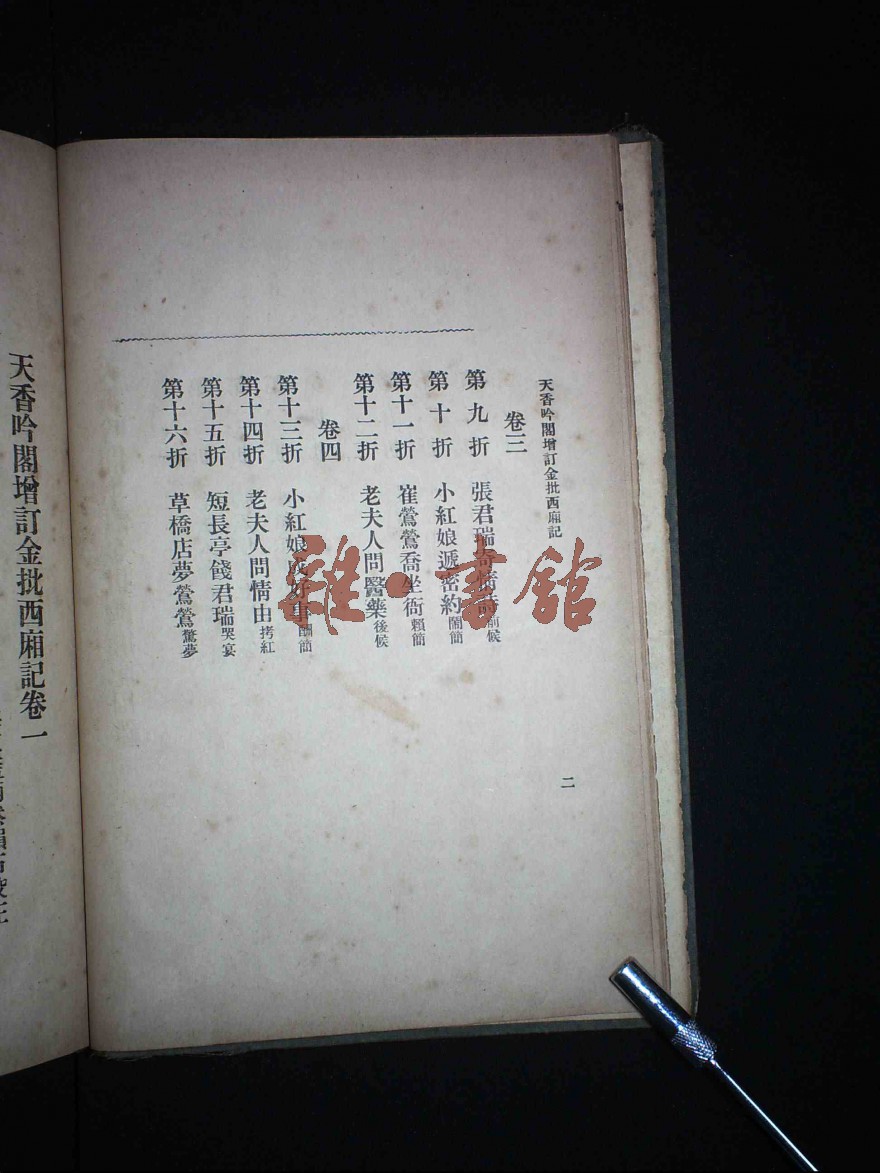 天香吟閣增訂金批西廂記
卷三
第九折 張君瑞寄情詩前候
第十折 小紅娘遞密約鬧簡
第十一折 崔鶯鶯喬坐衙賴簡
第十二折 老夫人問醫藥後候
卷四
第十三折 小紅娘成好事酬簡
第十四折 老夫人問情由拷紅
第十五折 短長亭餞君瑞哭宴
第十六折 草橋店夢鶯鶯驚夢
二
天香吟閣增訂金批西廂記卷一
雜·書館